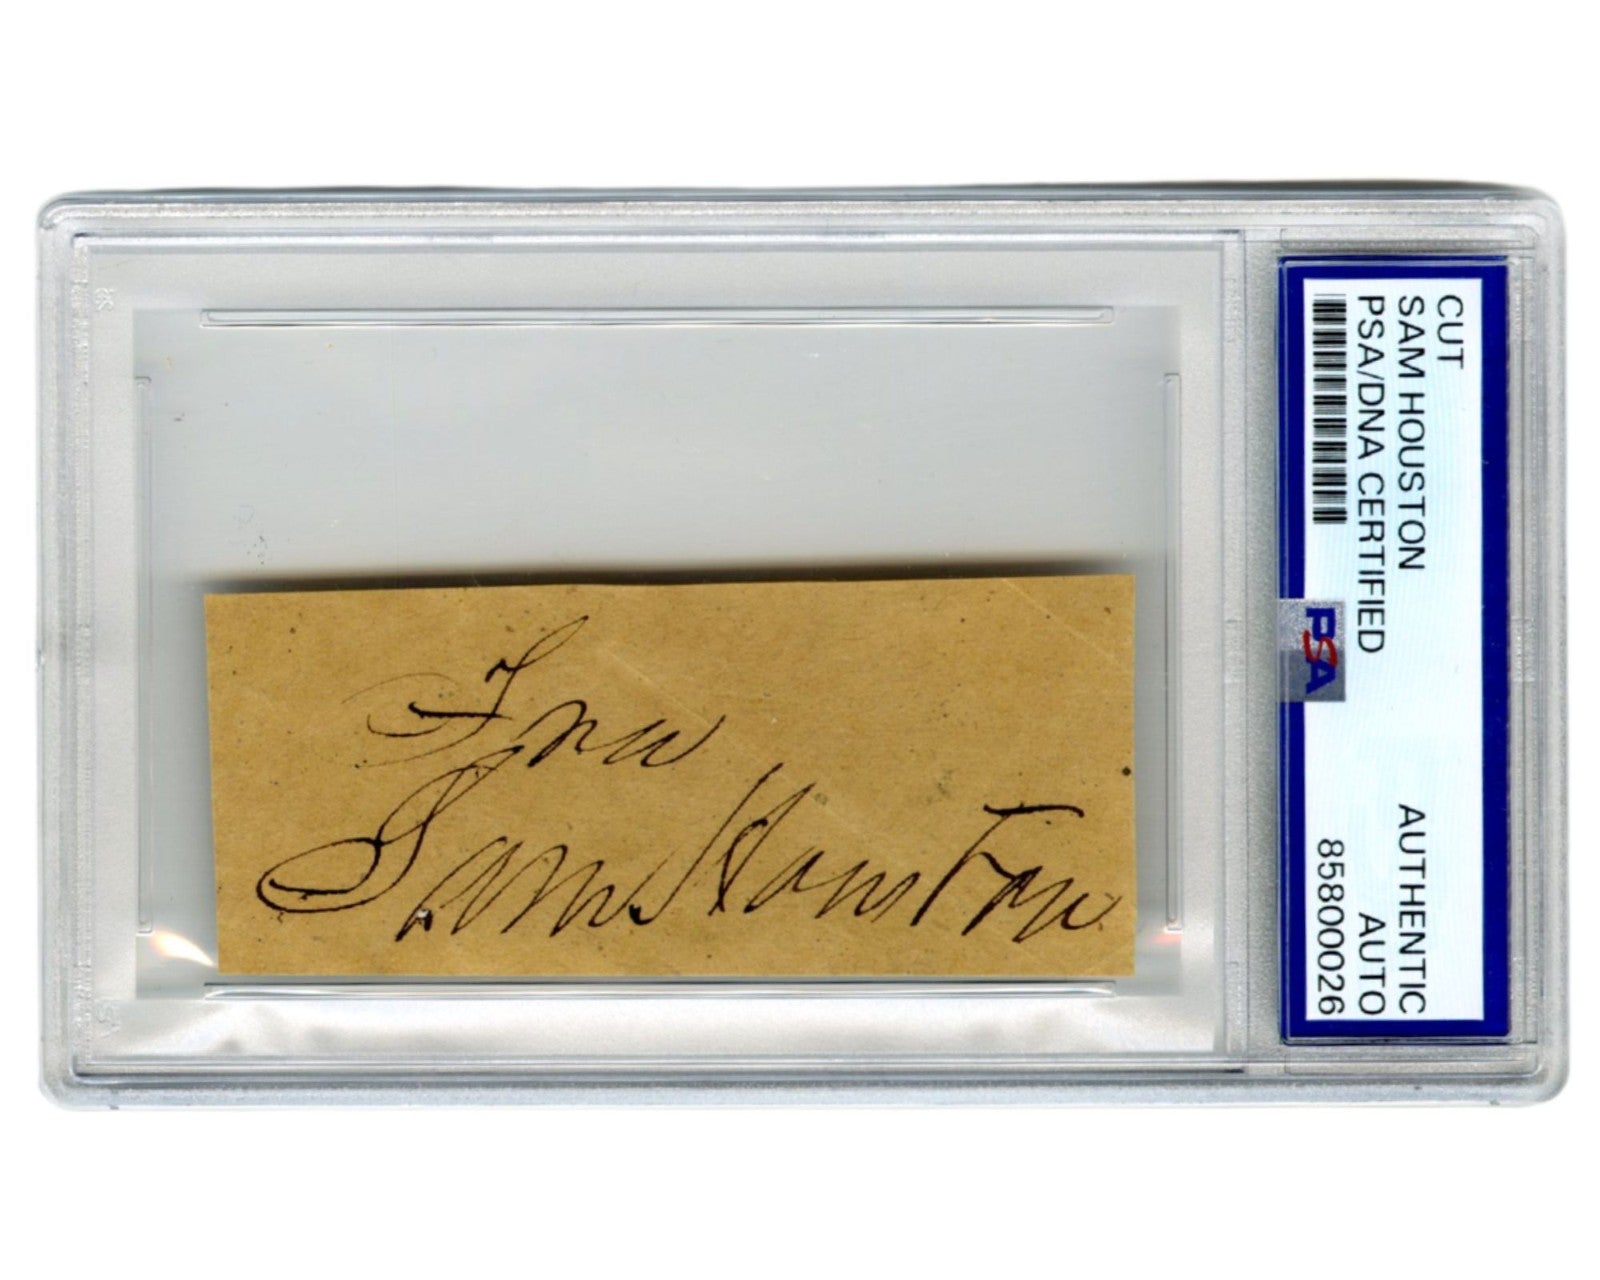 Tru
Sam Houston
CUT
SAM HOUSTON
PSA/DNA CERTIFIED
AUTHENTIC
AUTO
85800026
PSA